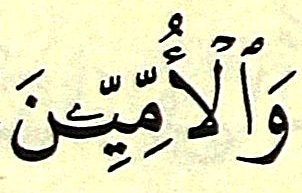 وَٱلۡأُمِّيِّـۧنَ